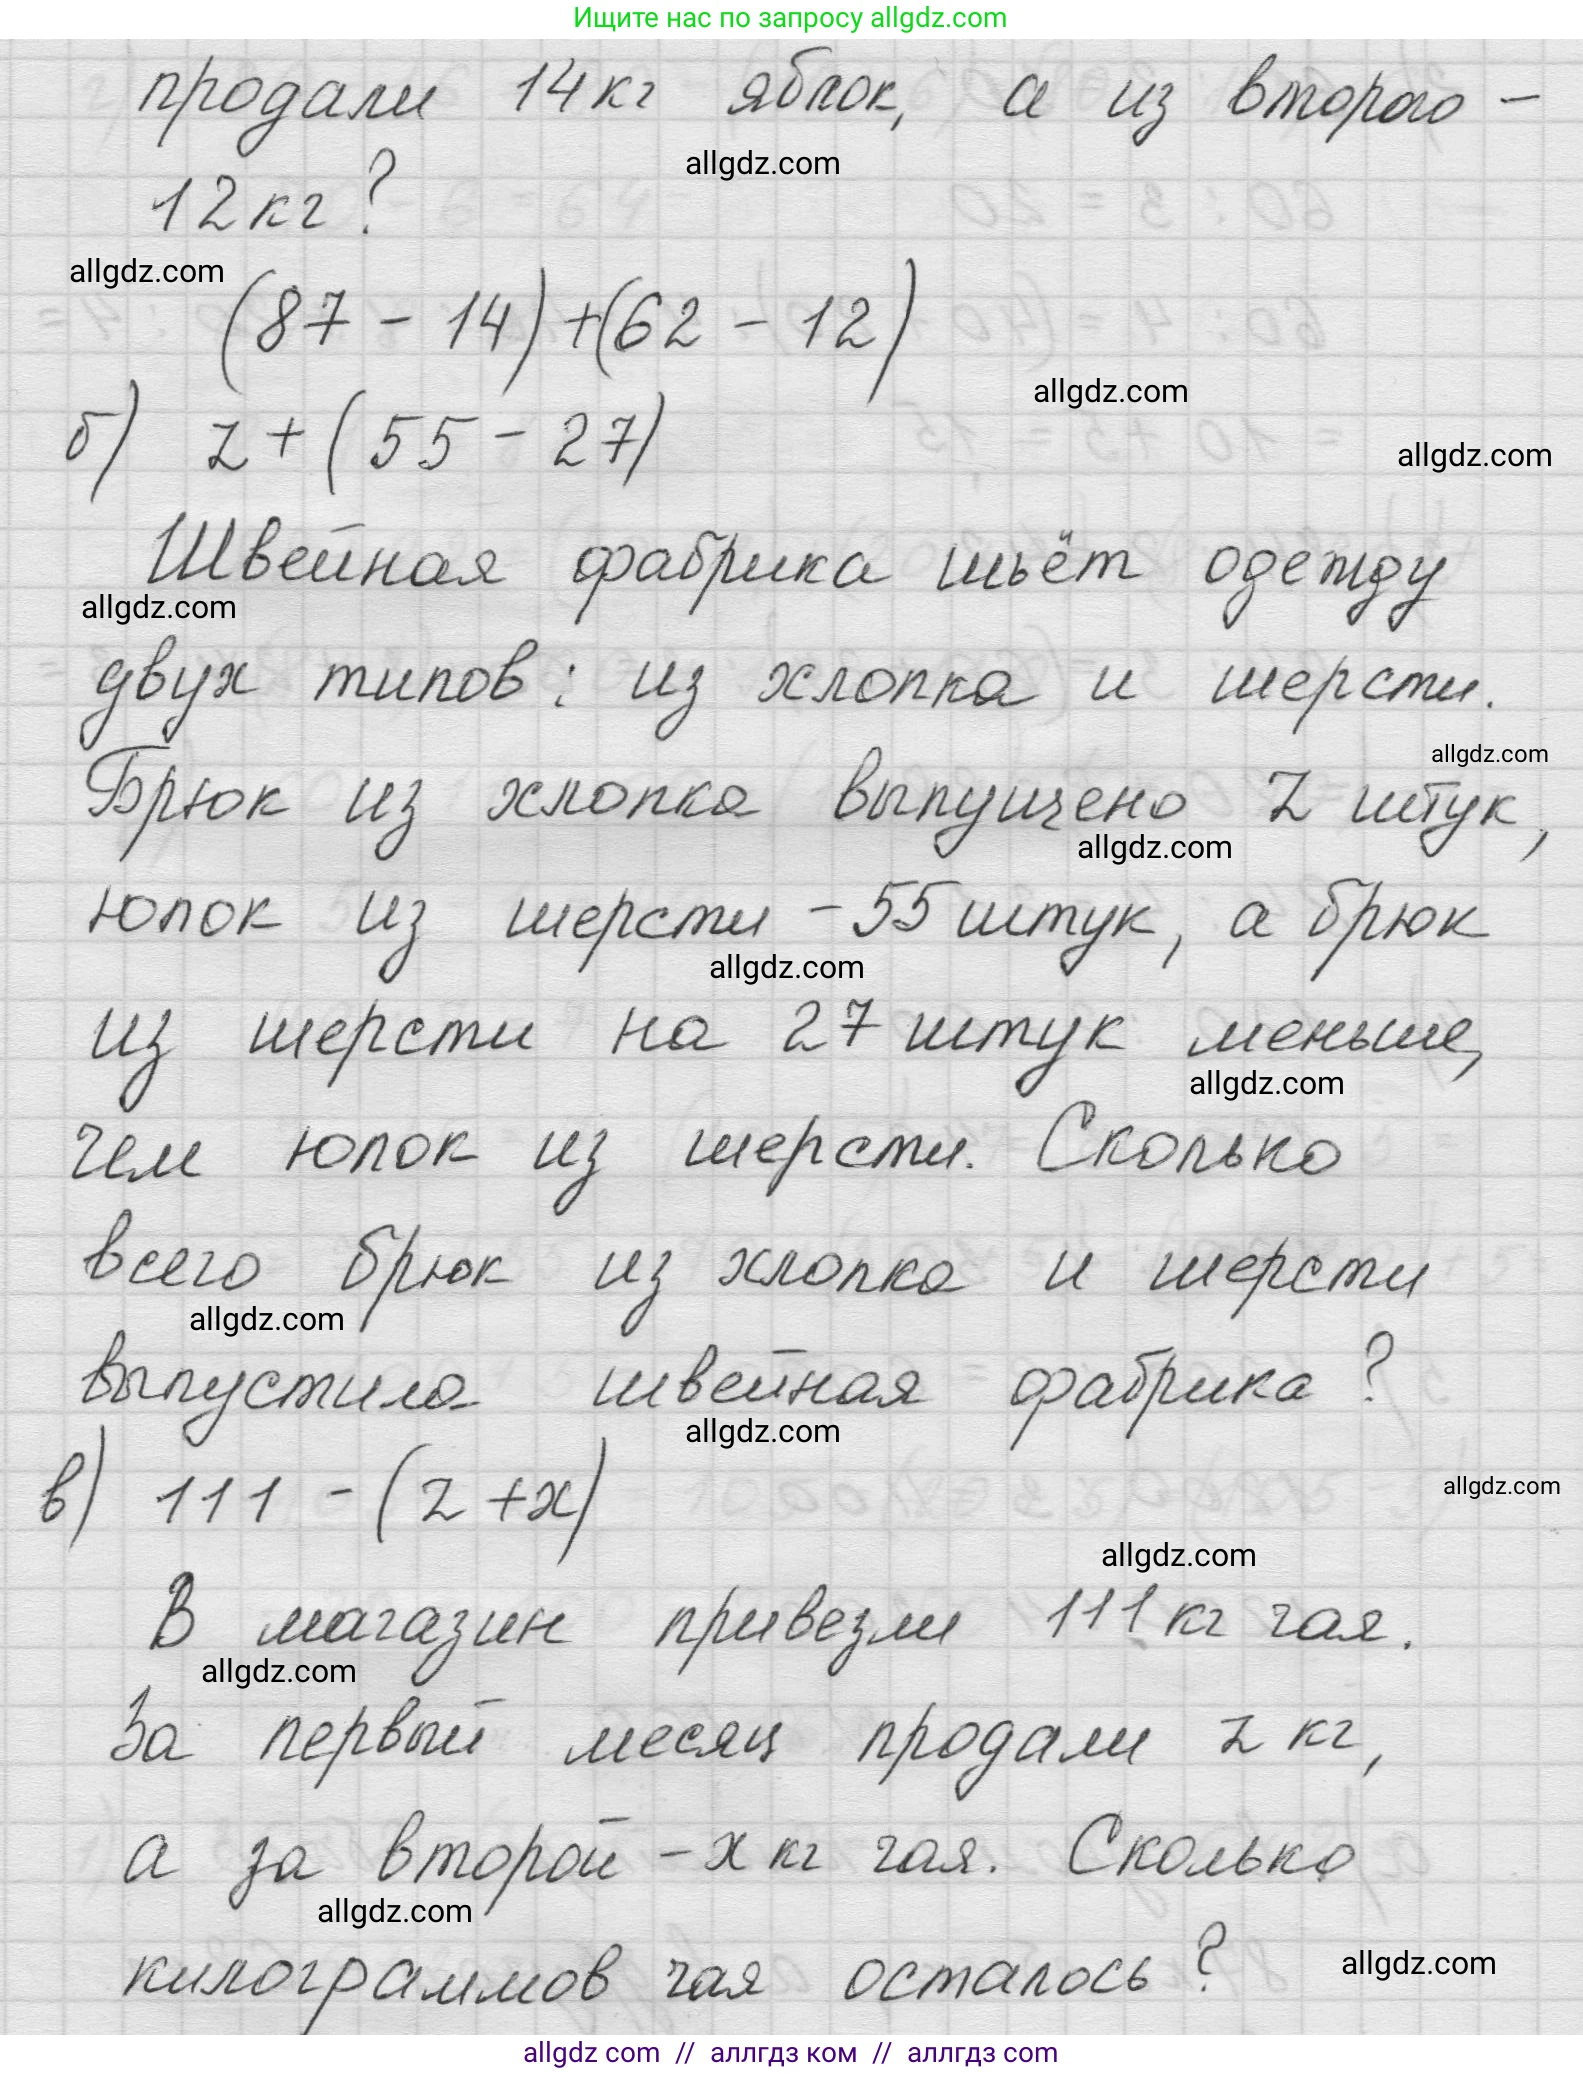 Ищите нас по запросу allgdz.com
продали 14 кг яблок, а из второго –
allgdz.com
12 кг?
allgdz.com
(87 - 14) + (62 - 12)
allgdz.com
б) z + (55 - 27)
allgdz.com
Швейная фабрика шьёт одежду
allgdz.com
двух типов: из хлопка и шерсти.
allgdz.com
Брюк из хлопка выпущено z штук,
allgdz.com
юпок из шерсти - 55 штук, а брюк
allgdz.com
из шерсти на 27 штук меньше,
allgdz.com
чем юпок из шерсти. Сколько
всего брюк из хлопка и шерсти
allgdz.com
выпустила швейная фабрика?
allgdz.com
allgdz.com
в) 111 - (z + x)
allgdz.com
В магазин привезли 111 кг чая.
allgdz.com
За первый месяц продали z кг,
а за второй - x кг чая. Сколько
allgdz.com
килограммов чая осталось?
allgdz.com
allgdz com // аллгдз ком // аллгдз com